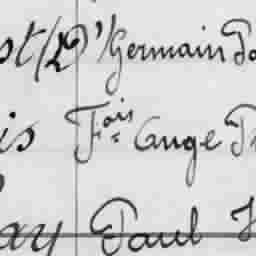 st (D' Germain
is Fois Ange
ay Paul